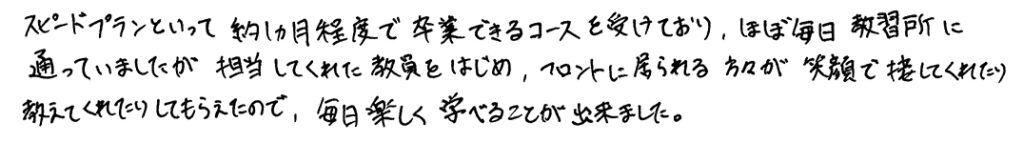 スピードプランといって約1カ月程度で卒業できるコースを受けており，ほぼ毎日教習所に
通っていましたが担当してくれた教員をはじめ，フロントに居られる方々が笑顔で接してくれたり
教えてくれたりしてもらえたので，毎日楽しく学べることが出来ました。